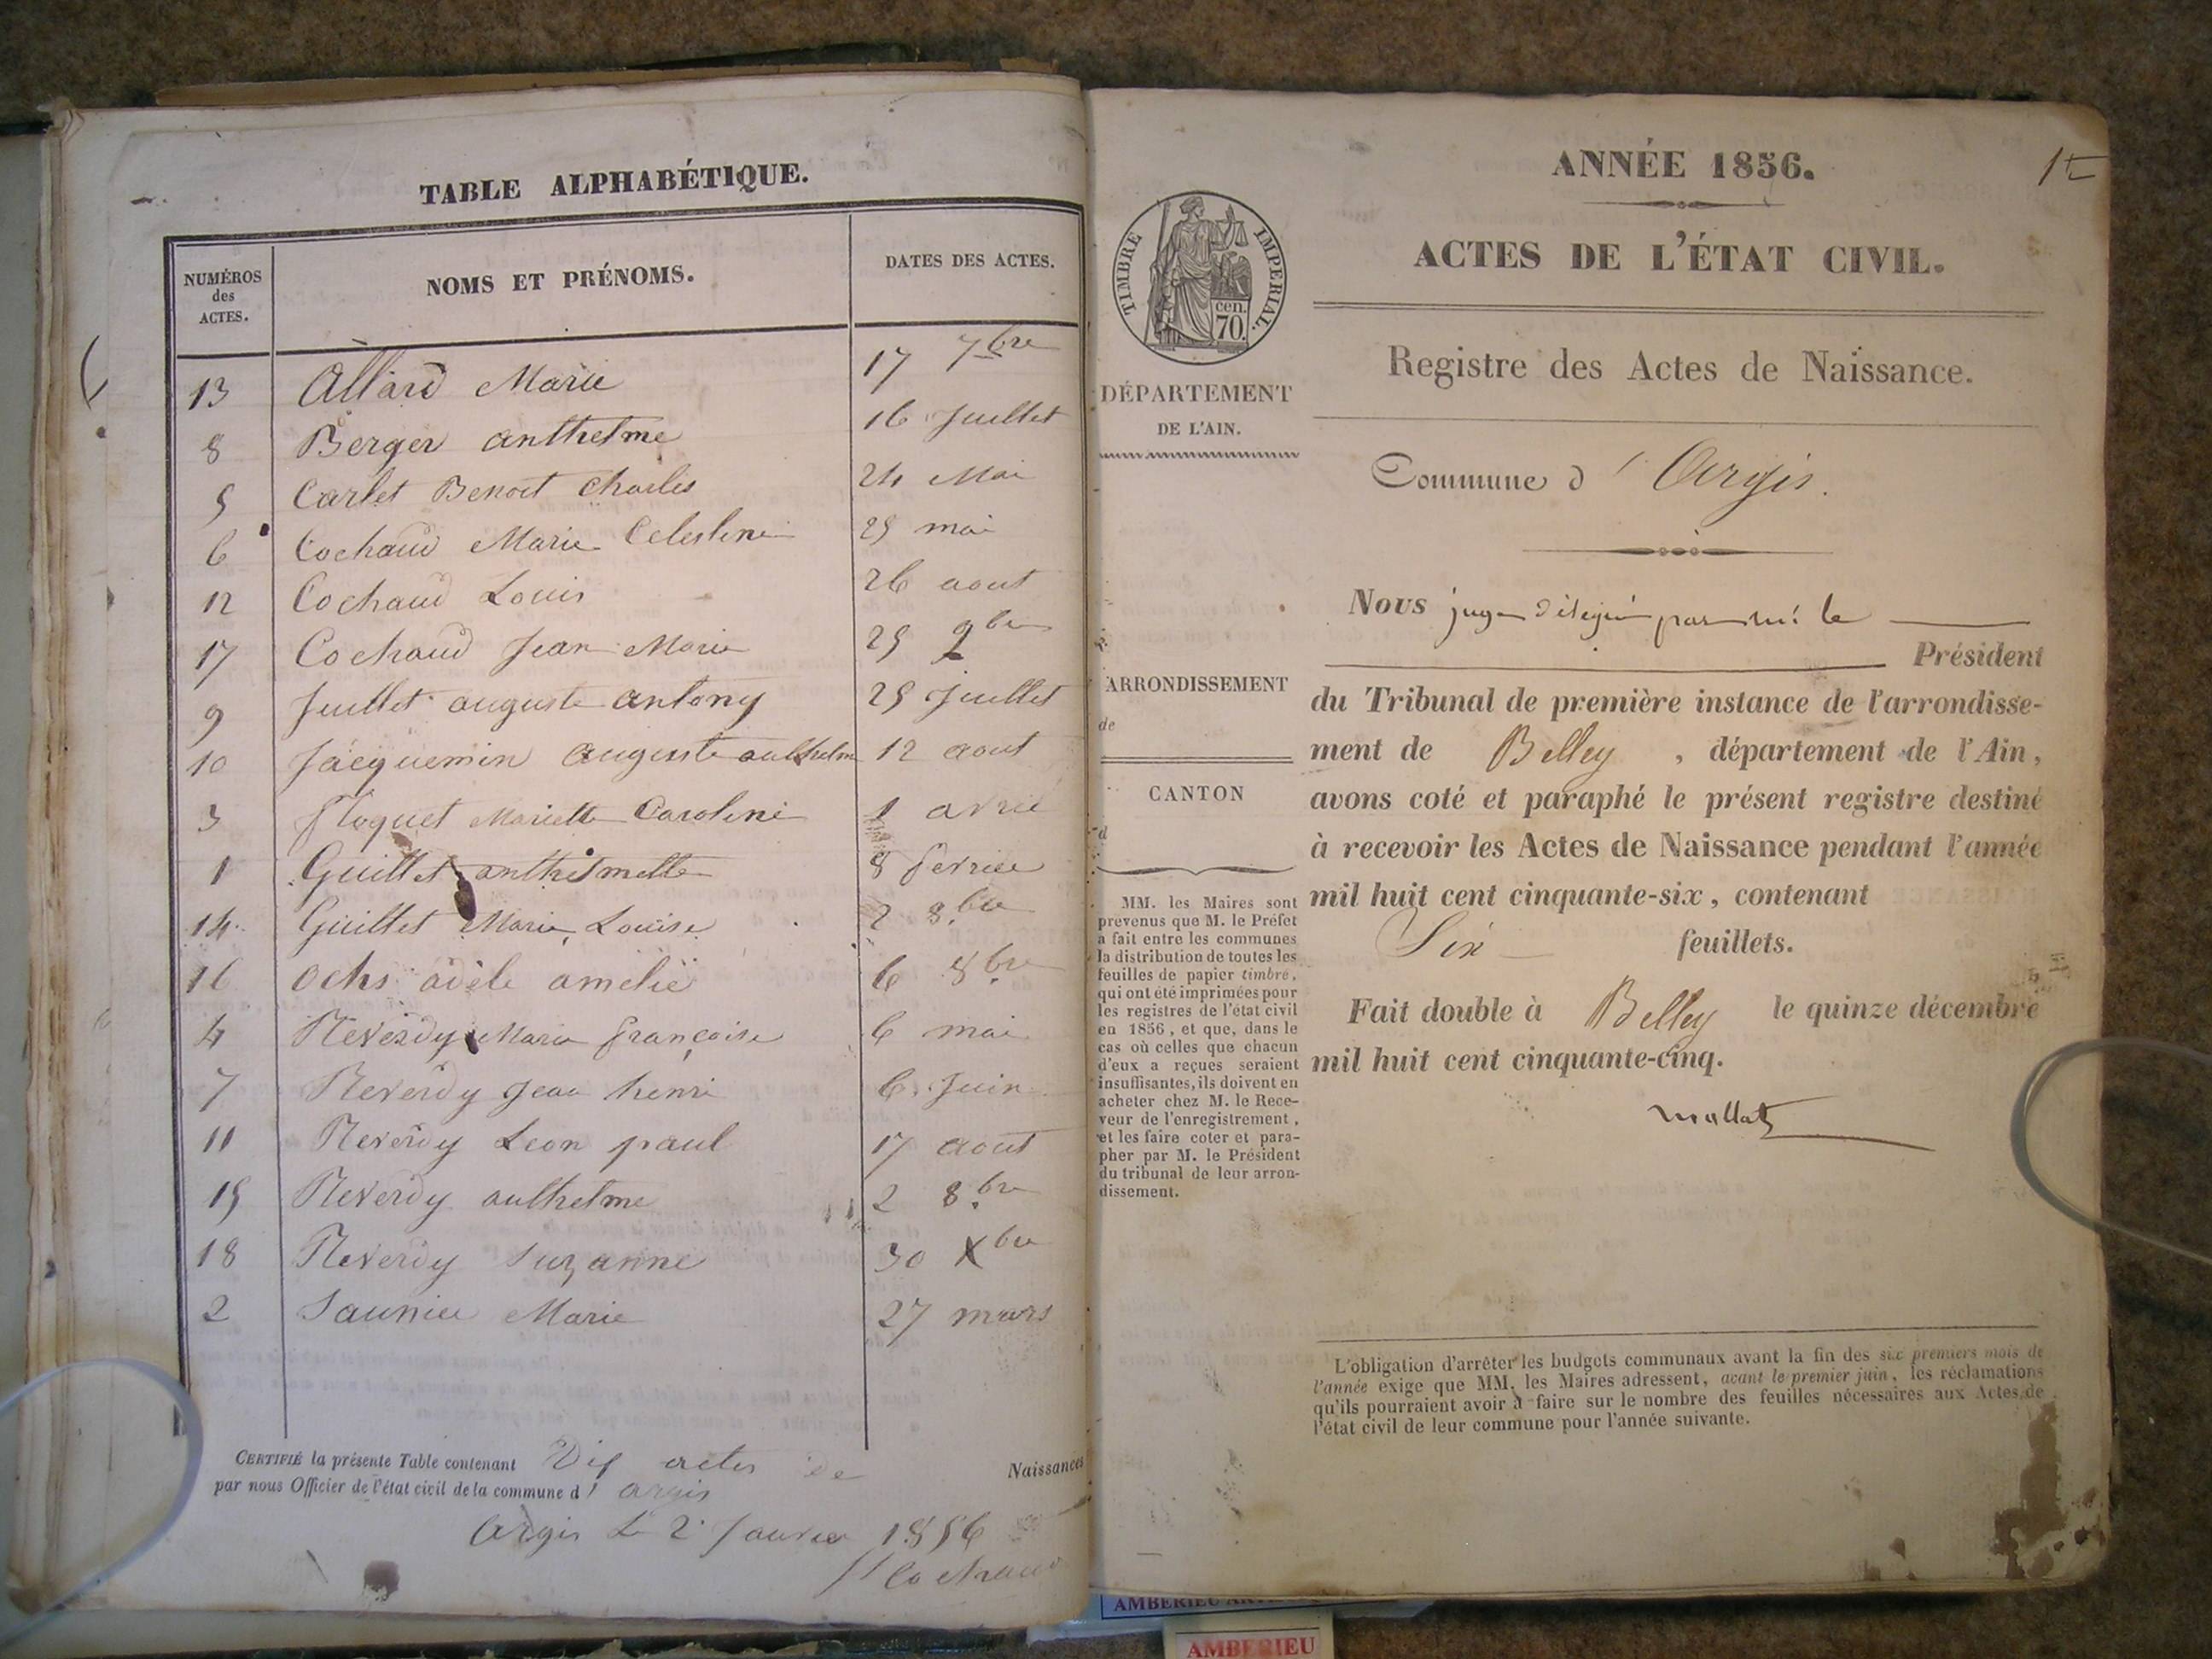 TABLE ALPHABÉTIQUE.
NUMÉROS des ACTES.
NOMS ET PRÉNOMS.
DATES DES ACTES.
13 Allard Marie 17 7bre
8 Berger anthelme 16 Juillet
5 Carlet Benoit Charles 24 Mai
6 Cochaud Marie Celestine 25 mai
12 Cochaud Louis 26 aout
17 Cochaud Jean Marie 25 9bre
9 Juillet auguste antony 25 Juillet
10 Jacquemin auguste anthelme 12 aout
3 Floquet Mariette Caroline 1 avril
1 Guillet anthelmette 8 fevrier
14 Guillet Marie Louise 2 8bre
16 Ochs adèle amelie 6 8bre
4 Reverdy Marie françoise 6 mai
7 Reverdy Jean henri 6 Juin
11 Reverdy Leon paul 17 aout
15 Reverdy anthelme 2 8bre
18 Reverdy Suzanne 30 Xbre
2 Saunier Marie 27 mars
CERTIFIÉ la présente Table contenant Dix actes de Naissances
par nous Officier de l'état civil de la commune d' argis
Argis Le 2 Janvier 1856
Cochaud
1
ANNÉE 1856.
ACTES DE L'ÉTAT CIVIL.
TIMBRE IMPERIAL.
cen.
70.
DÉPARTEMENT
DE L'AIN.
ARRONDISSEMENT
de
CANTON
d
MM. les Maires sont
prévenus que M. le Préfet
a fait entre les communes
la distribution de toutes les
feuilles de papier timbré,
qui ont été imprimées pour
les registres de l'état civil
en 1856, et que, dans le
cas où celles que chacun
d'eux a reçues seraient
insuffisantes, ils doivent en
acheter chez M. le Rece-
veur de l'enregistrement,
et les faire coter et para-
pher par M. le Président
du tribunal de leur arron-
dissement.
Registre des Actes de Naissance.
Commune d'Argis.
Nous juge délégué par Mr le
Président
du Tribunal de première instance de l'arrondisse-
ment de Belley, département de l'Ain,
avons coté et paraphé le présent registre destiné
à recevoir les Actes de Naissance pendant l'année
mil huit cent cinquante-six, contenant
Six feuillets.
Fait double à Belley le quinze décembre
mil huit cent cinquante-cinq.
Mollat
L'obligation d'arrêter les budgets communaux avant la fin des six premiers mois de
l'année exige que MM. les Maires adressent, avant le premier juin, les réclamations
qu'ils pourraient avoir à faire sur le nombre des feuilles nécessaires aux Actes de
l'état civil de leur commune pour l'année suivante.
AMBERIEU
AMBERIEU